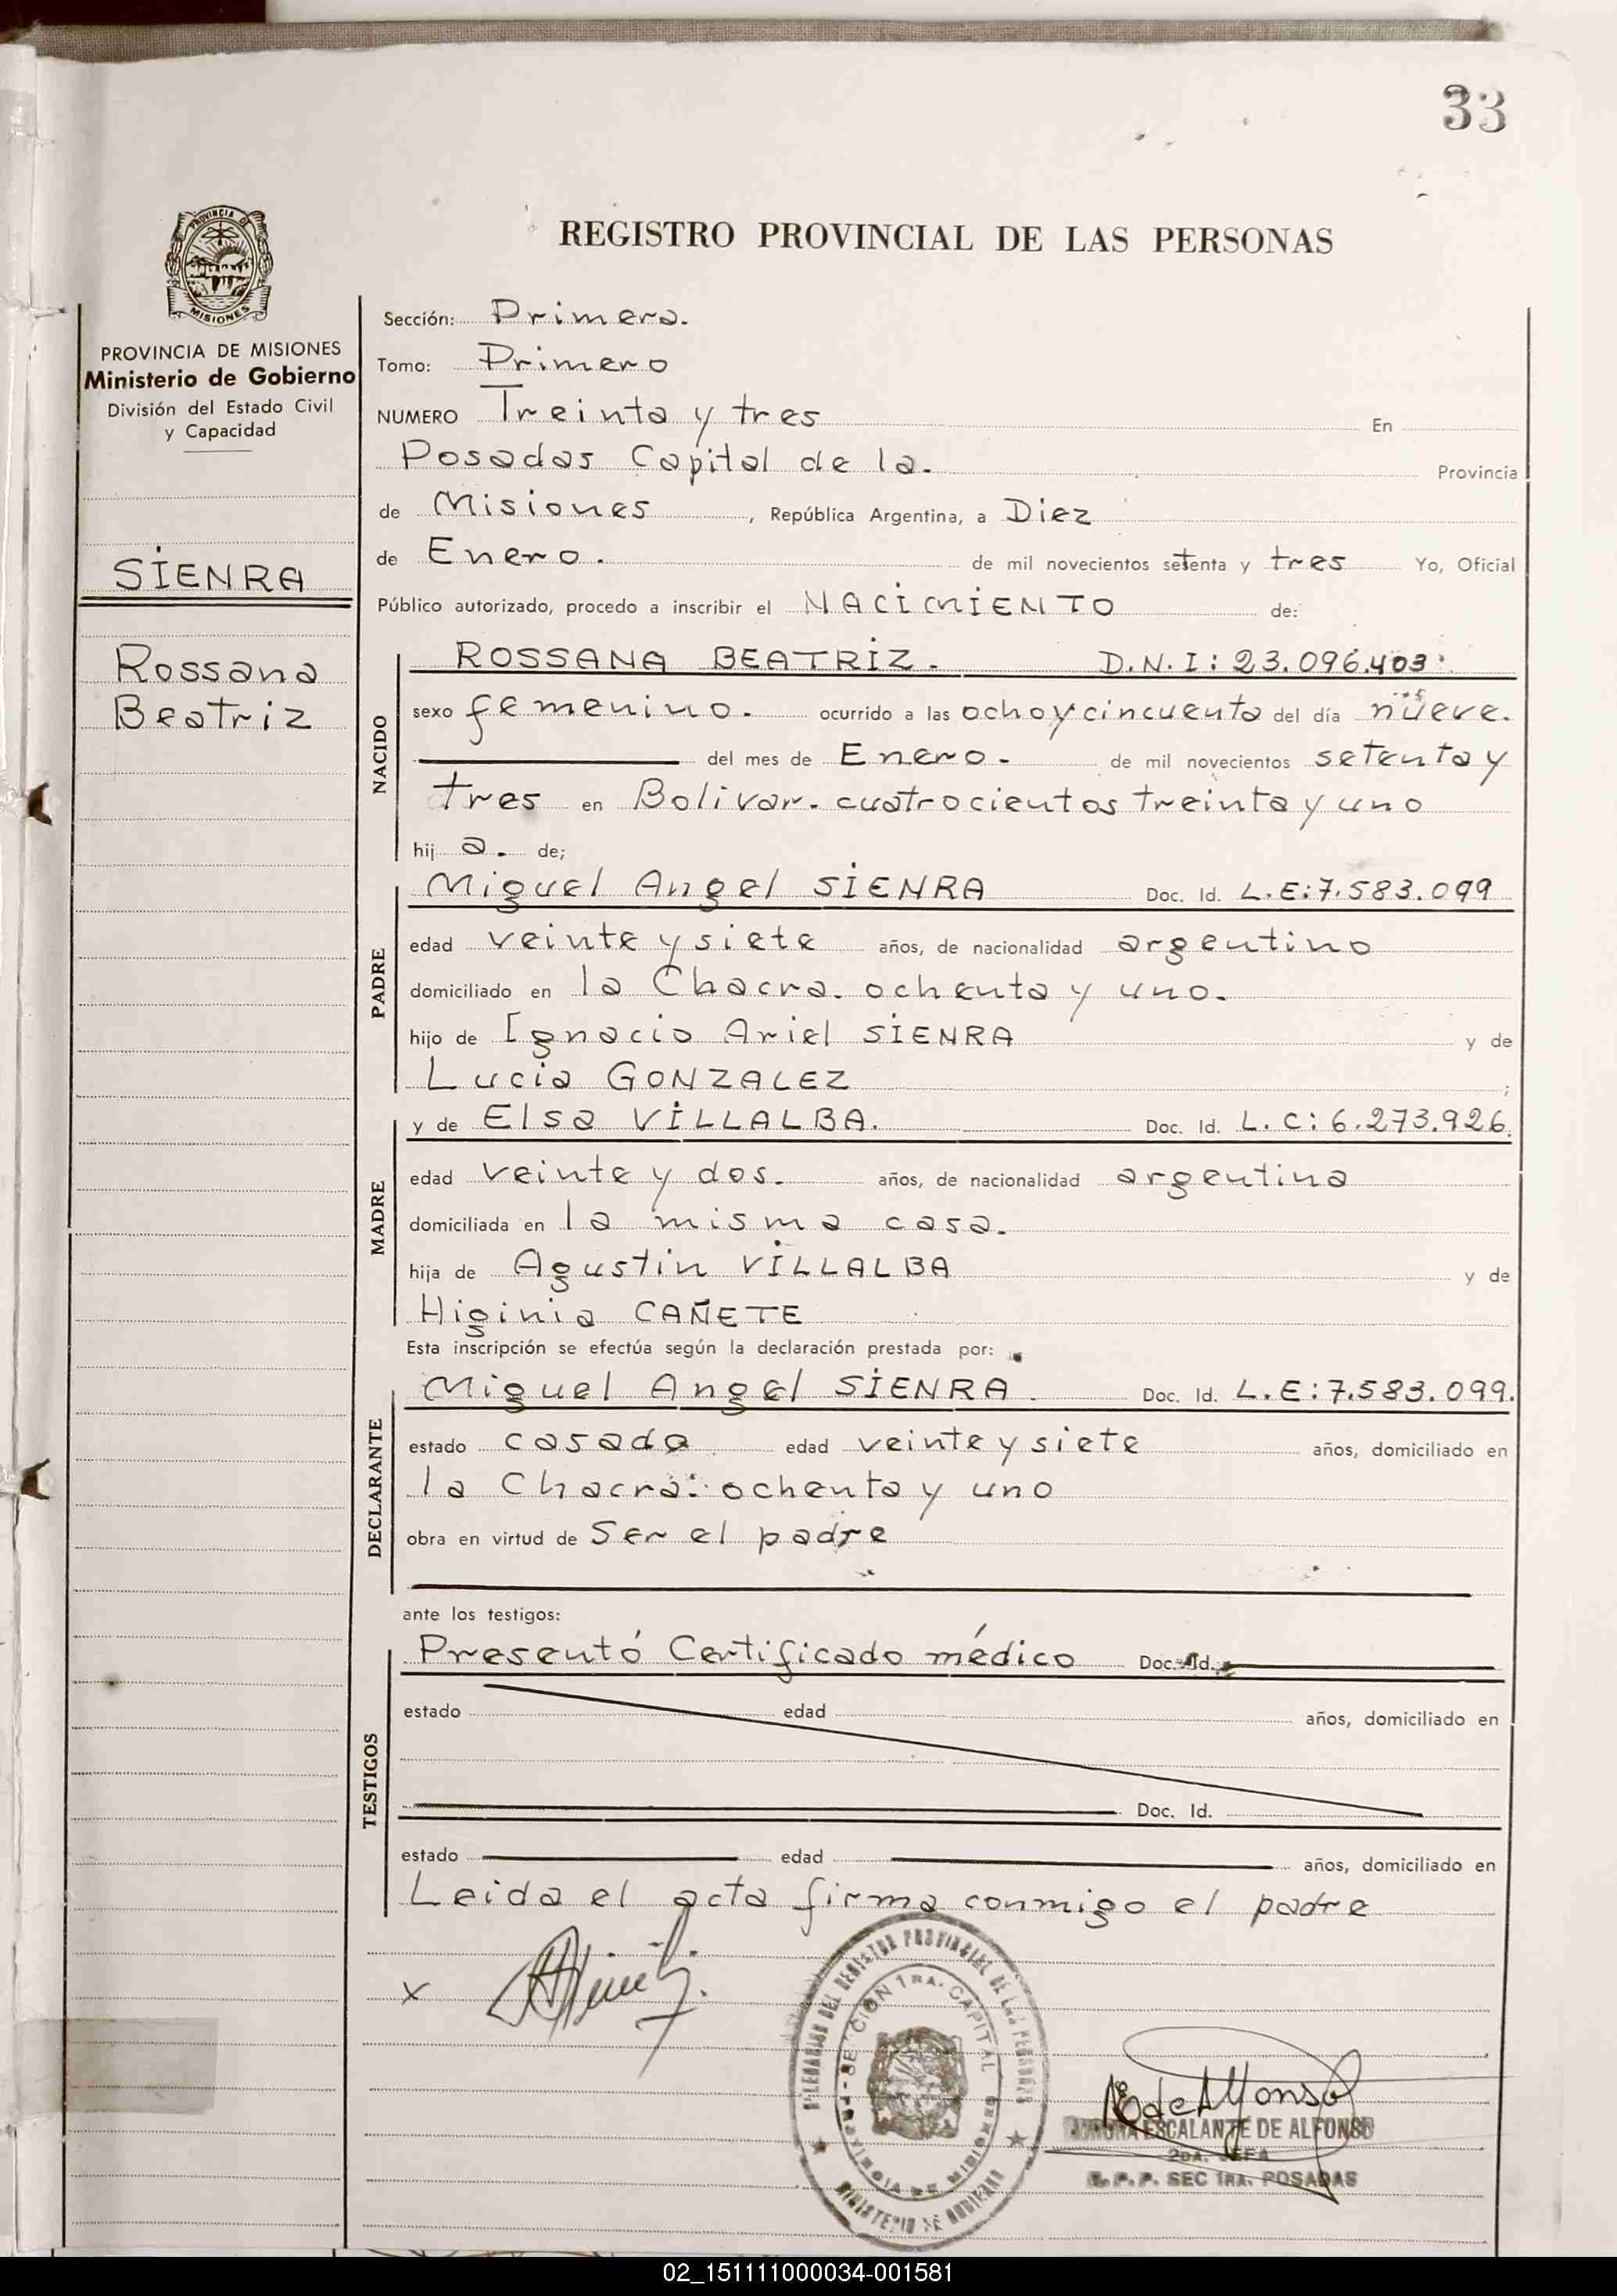 33
REGISTRO PROVINCIAL DE LAS PERSONAS
PROVINCIA DE MISIONES
PROVINCIA DE MISIONES
Ministerio de Gobierno
División del Estado Civil
y Capacidad
SIENRA
Rossana
Beatriz
Sección: Primera.
Tomo: Primero
NUMERO Treinta y tres En
Posadas Capital de la. Provincia
de Misiones, República Argentina, a Diez
de Enero. de mil novecientos setenta y tres Yo, Oficial
Público autorizado, procedo a inscribir el NACIMIENTO de:
NACIDO
ROSSANA BEATRIZ. D.N.I: 23.096.403.
sexo femenino. ocurrido a las ocho y cincuenta del día nueve.
del mes de Enero. de mil novecientos setenta y
tres en Bolivar. cuatrocientos treinta y uno
hij a. de;
PADRE
Miguel Angel SIENRA Doc. Id. L.E:7.583.099
edad veinte y siete años, de nacionalidad argentino
domiciliado en la Chacra. ochenta y uno.
hijo de Ignacio Ariel SIENRA y de
Lucia GONZALEZ ;
MADRE
y de Elsa VILLALBA. Doc. Id. L.C: 6.273.926.
edad veinte y dos. años, de nacionalidad argentina
domiciliada en la misma casa.
hija de Agustin VILLALBA y de
Higinia CAÑETE
Esta inscripción se efectúa según la declaración prestada por:
DECLARANTE
Miguel Angel SIENRA. Doc. Id. L.E:7.583.099.
estado casado edad veinte y siete años, domiciliado en
la Chacra: ochenta y uno
obra en virtud de Ser el padre
ante los testigos:
TESTIGOS
Presentó Certificado médico Doc. Id.
estado edad años, domiciliado en
Doc. Id.
estado edad años, domiciliado en
Leida el acta firma conmigo el padre
x
DEL REGISTRO PROVINCIAL DE LAS PERSONAS
SECCION 1RA. CAPITAL
PROVINCIA DE MISIONES
MINISTERIO DE GOBIERNO
ESCALANTE DE ALFONSO
2DA. JEFA
R.P.P. SEC 1RA. POSADAS
02_151111000034-001581